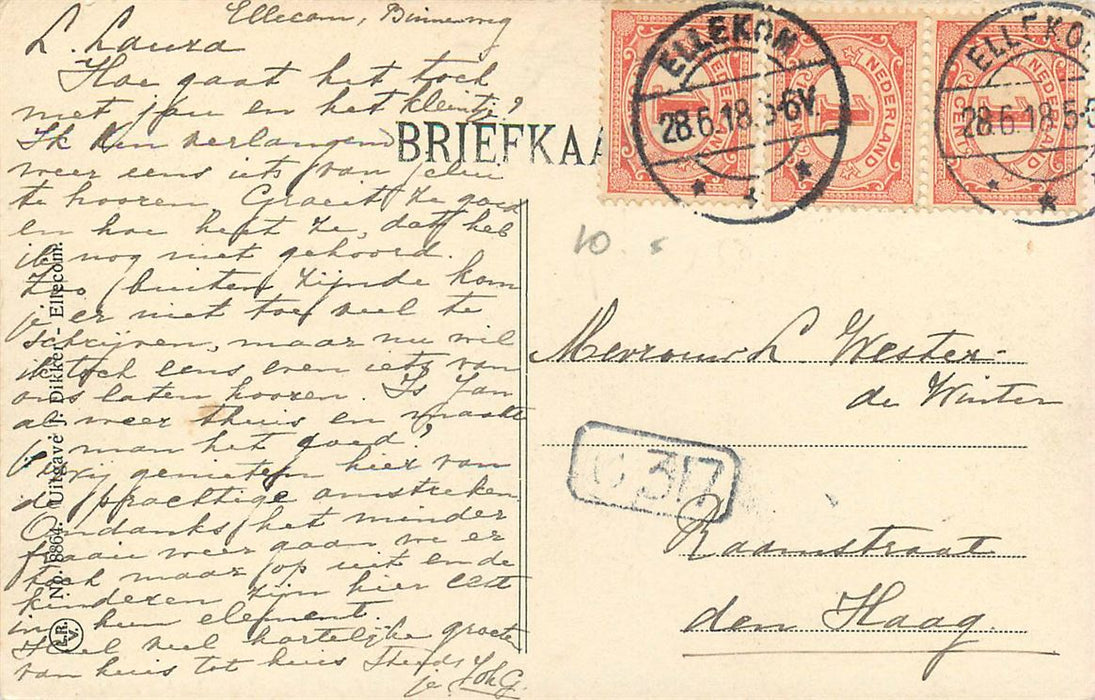 Ellecom, Binnenweg
L. Laura
Hoe gaat het toch
met Jan en het kleintje?
Ik ben verlangend
weer eens iets van
te hooren. Groeit ze goed
en hoe heet ze, dat heb
ik nog niet gehoord.
Zoo buiten zijnde kom
je er niet toe veel te
schrijven, maar nu wil
ik toch eens even iets van
ons laten hooren. Is Jan
al weer thuis en maakt
je man het goed?
Wij genieten hier van
de prachtige omstreken
Ondanks het minder
fraaie weer gaan we er
toch maar op uit en de
kinderen zijn hier echt
in hun element.
Heel veel hartelijke groeten
van huis tot huis
BRIEFKAA
ELLEKOM
28.6.18.5-6V.
ELLEKO
28.6.18.5-6
NEDERLAND
1
CENT
NEDERLAND
1
CENT
NEDERLAND
1
CENT
10.
Mevrouw L Wester-
de Winter
317
Raamstraat
den Haag.
No. 8864. Uitgave J. Dikken - Ellecom.
L.R.
V.